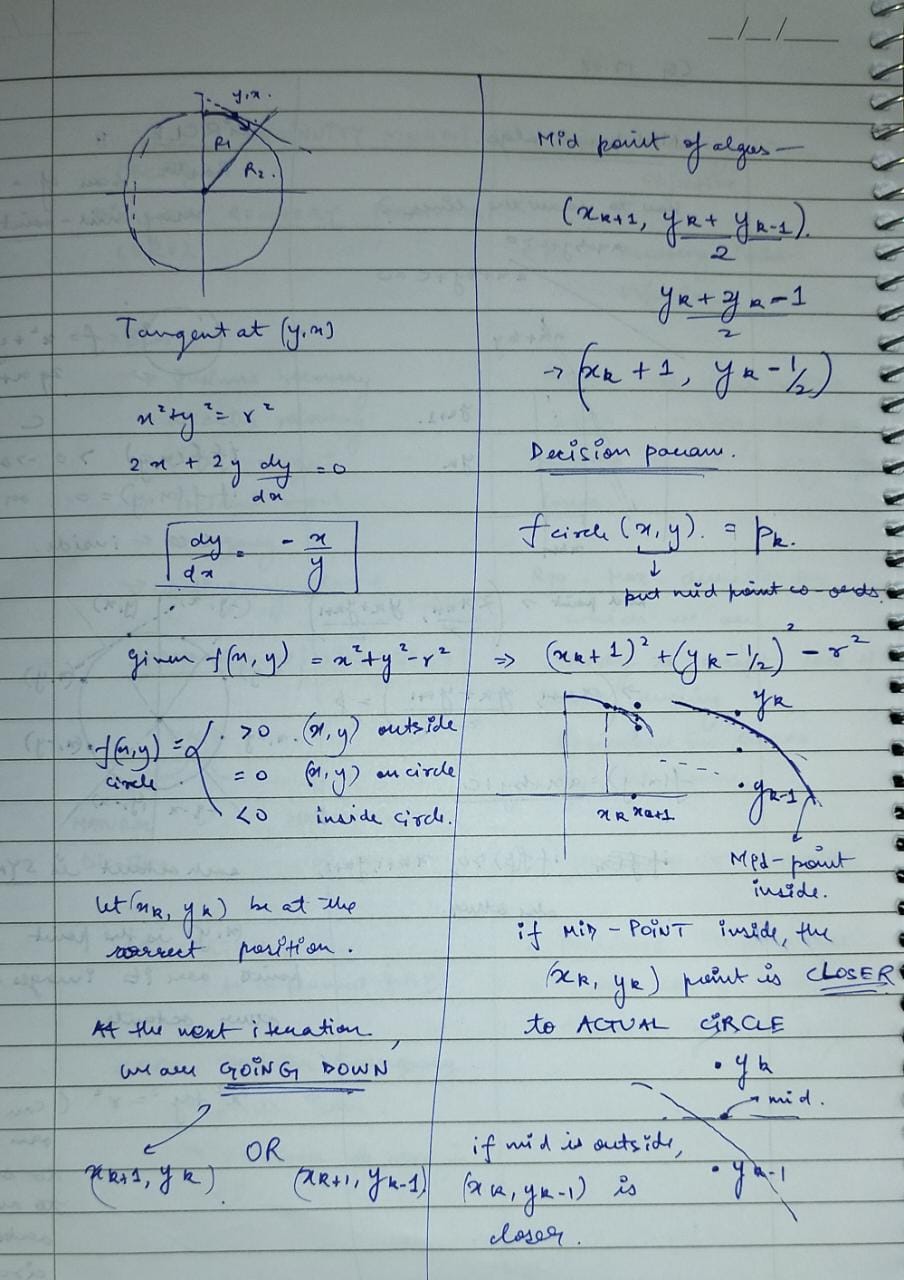 _/_/__
y,x.
R1
R2.
Tangent at (y,x)
x²+y² = r²
2x + 2y dy/dx = 0
dy/dx = -x/y
given f(x,y) = x²+y²-r²
f(x,y) = >0 (x,y) outside
circle = 0 (x,y) on circle
<0 inside circle.
let (xk, yk) be at the
correct position.
At the next iteration,
we are GOING DOWN
OR
(xk+1, yk) (xk+1, yk-1)
Mid point of algos —
(xk+1, yk + yk-1).
2
yk + yk - 1
2
→ (xk + 1, yk - 1/2)
Decision param.
f circle (x, y). = pk.
↓
put mid point co-ords.
⇒ (xk+1)² + (yk - 1/2)² - r²
yk
yk-1
xk xk+1
Mid-point
inside.
if MID-POINT inside, the
(xk, yk) point is CLOSER
to ACTUAL CIRCLE
yk
mid.
if mid is outside,
yk-1
(xk, yk-1) is
closer.